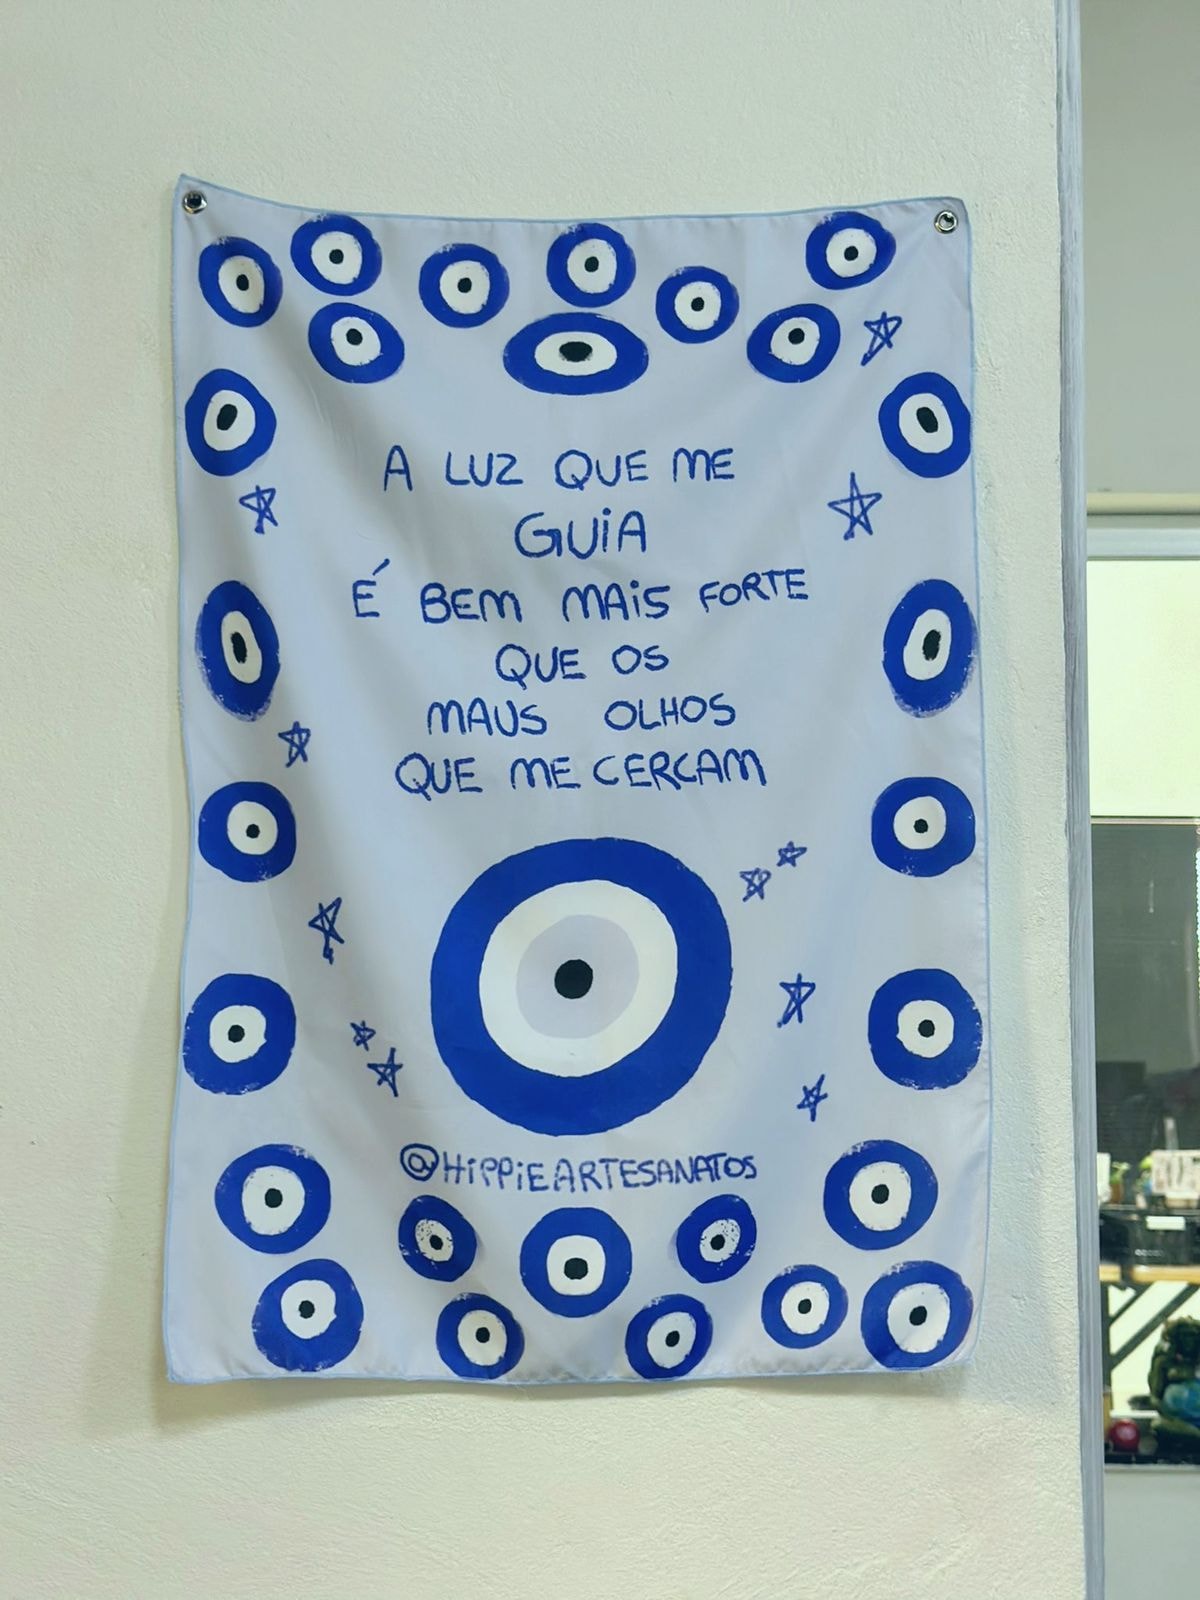 A LUZ QUE ME
GUiA
É BEM MAiS FORTE
QUE OS
MAUS OLHOS
QUE ME CERCAM
@HiPPiEARTESANATOS